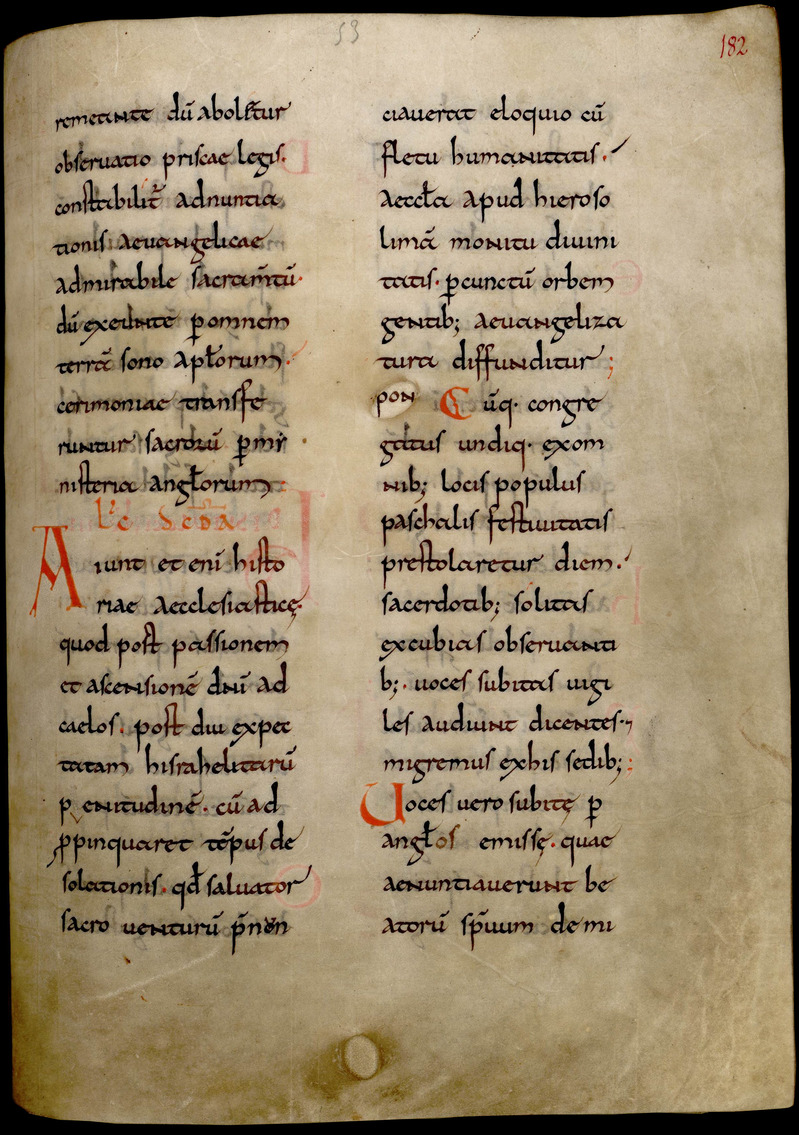 53
182
remeante dū abolētur
obseruatio priscae legis.
constabilit̄ adnuntia
tionis aeuangelicae
admirabile sacram̄tū.
dū exeunte ꝑ omnem
terrā sono apłorum.
cerimoniae transfe
runtur sacrorū ꝑ mi
nisteria angłorum
Lc̄ SEDA
Aiunt et enī histo
riae aecclesiasticę.
quod post passionem
et ascensionē dn̄i ad
caelos. post diu expec
tatam hisrahelitarū
penitudinē. cū ad
ꝓpinquaret tēpus de
solationis. qđ saluator
sacro uenturū p̄nun
ciauerat eloquio cū
fletu humanitatis.
aeccła apud hieroso
limā monitu diuini
tatis. ꝑ cunctū orbem
gentib; aeuangeliza
tura diffunditur;
pon Cūq· congre
gatus undiq· ex om
nib; locis populus
paschalis festiuitatis
prestolaretur diem.
sacerdotib; solitas
excubias obseruanti
b;. uoces subitas uigi
les audiunt dicentes.
migremus ex his sedib;
Uoces uero subitę ꝑ
angłos emissę. quae
aenuntiauerunt be
atorū sp̄uum demi